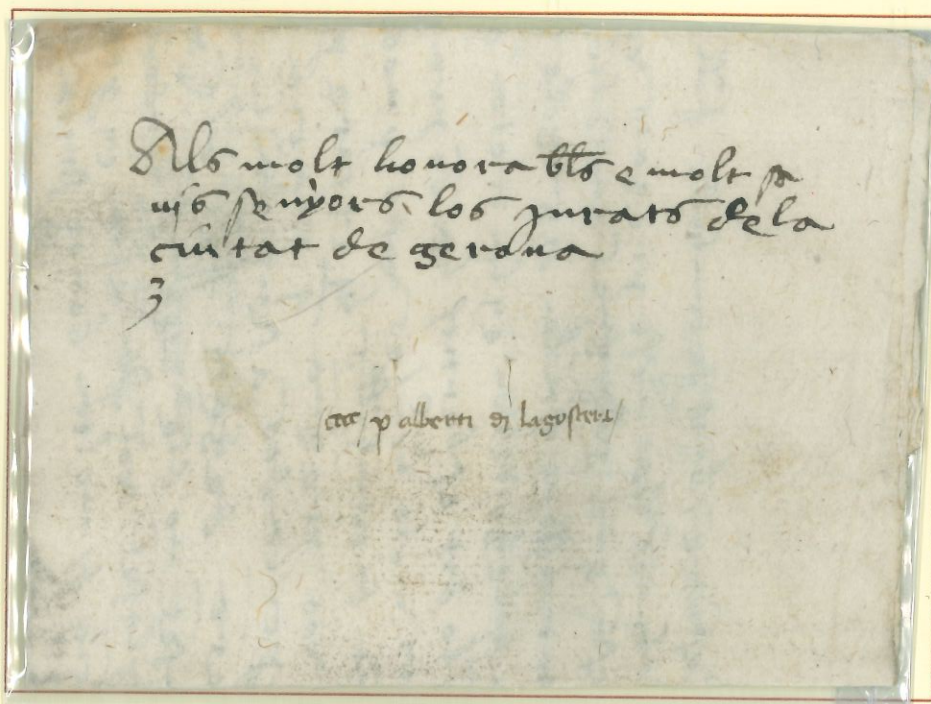 Als molt honorabls e molt sa
uis senyors los jurats dela
ciutat de gerona
p alberti di lagostera